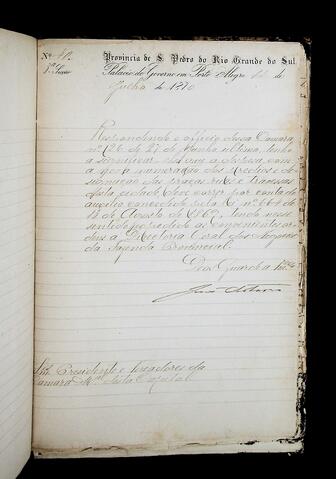 Nº 40. Provincia de S. Pedro do Rio Grande do Sul
Palacio do Governo em Porto Alegre de
Julho de 1870
Respondendo o officio dessa Camara
nº 26 de 27 de Junho ultimo, tenho
a significar que a despesa com
a nova numeração dos predios e de
signação das praças, ruas e travessas
desta cidade deve correr por conta do
auxilio concedido pela Lei nº 664 de
18 de Agosto de 1869, tendo nesse
sentido expedido as convenientes or
dens a Directoria Geral dos Negocios
da Fazenda Provincial.
Deos Guarde a
Presidente e Vereadores da
Camara desta Capital